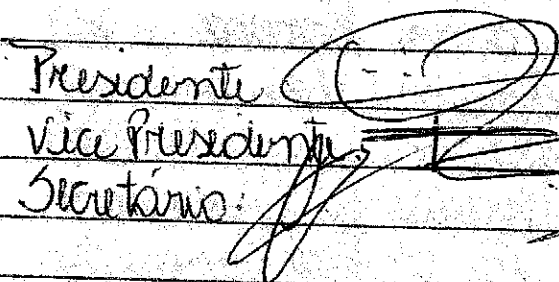 Presidente
Vice Presidente.
Secretário: